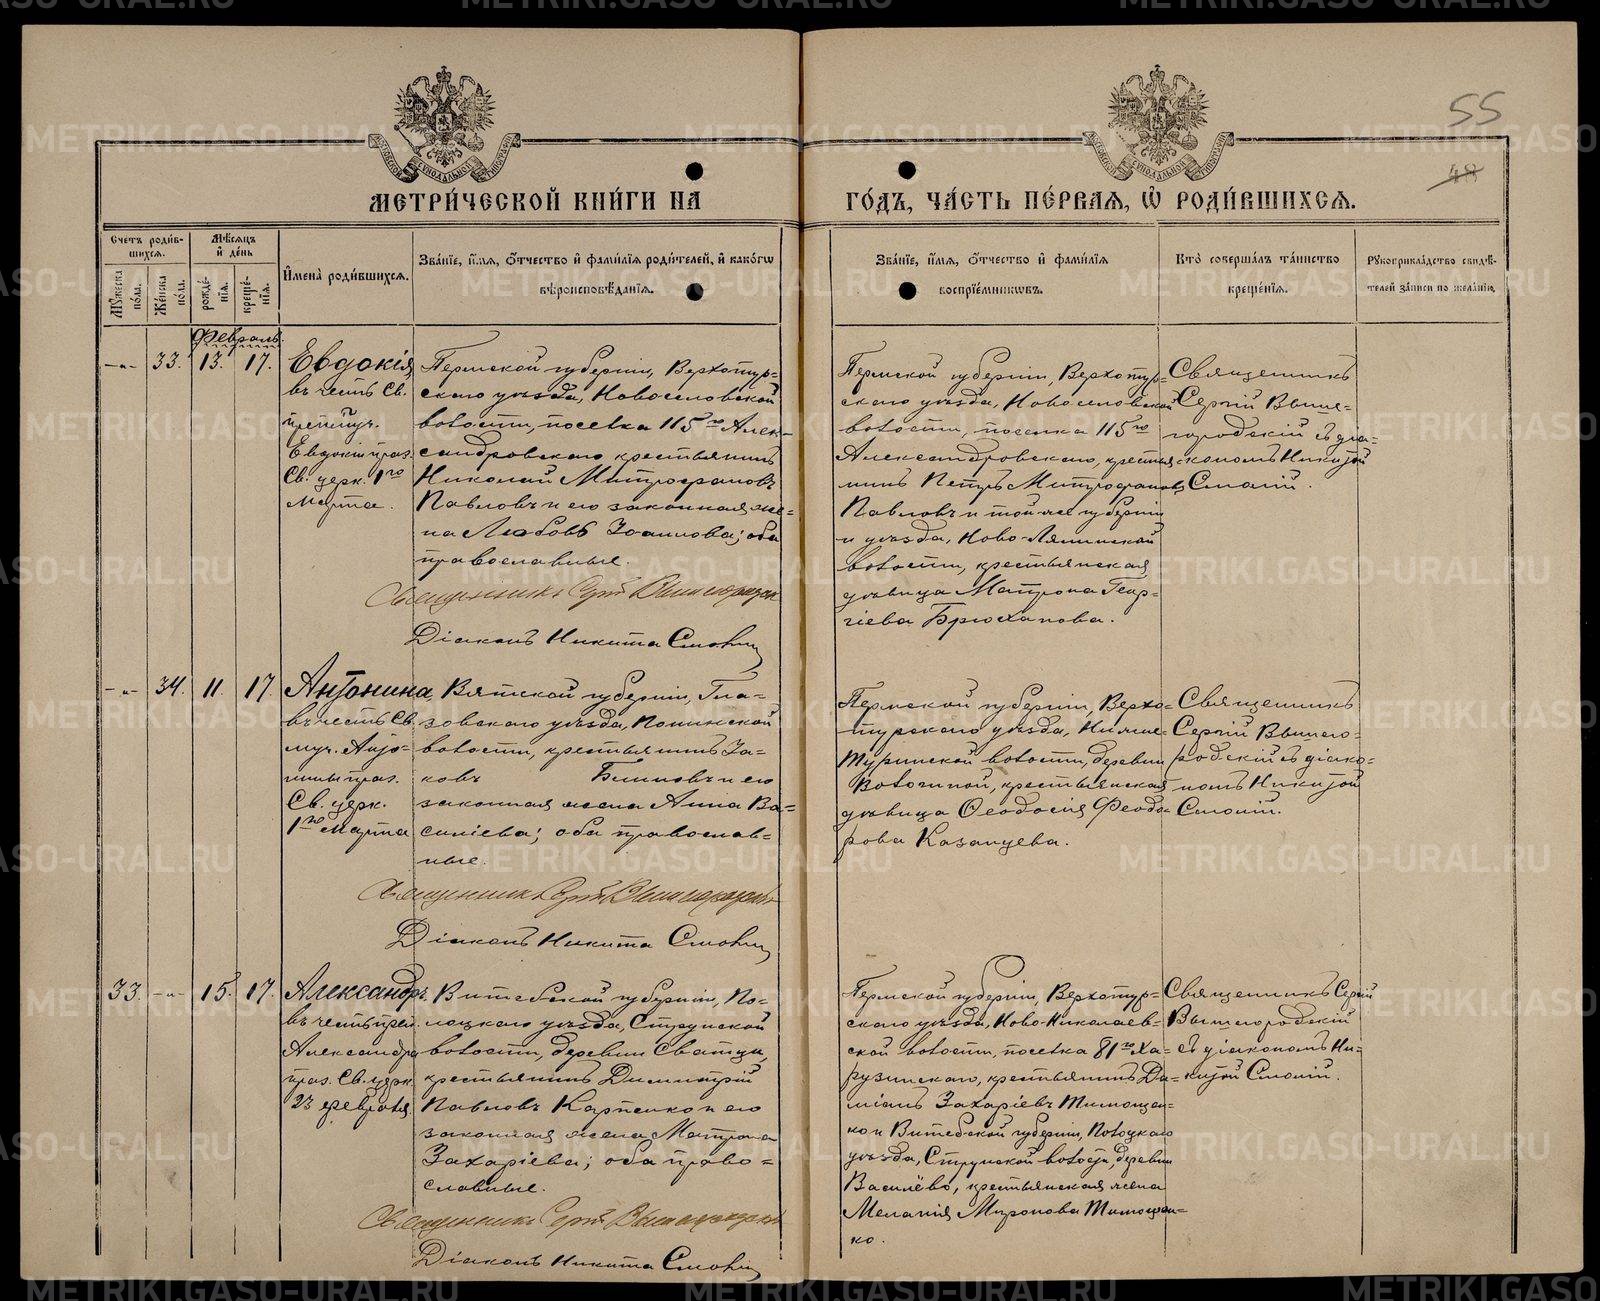 55
48
МЕТРИ́ЧЕСКОЙ КНИ́ГИ НА ГО́ДЪ, ЧА́СТЬ ПЕ́РВАЯ, Ѡ҆ РОДИ́ВШИХСЯ.
Счетъ роди́вшихся.
Мꙋ́жеска по́ла.
Же́нска по́ла.
Мѣ́сяцъ и҆ де́нь
рожде́нія.
креще́нія.
И҆мена̀ роди́вшихся.
Зва́нїе, и҆́мя, ѻ҆́тчество и҆ фами́лїя роди́телей, и҆ како́гѡ
вѣ̀роисповѣ́данїя.
Зва́нїе, и҆́мя, ѻ҆́тчество и҆ фами́лїя
воспрїе́мниковъ.
Кто̀ соверша́лъ та́инство
креще́нїя.
Рꙋкоприкла́дство свидѣ́-
телей за́писи по жела́нїю.
Февраль.
-"- 33. 13. 17.
Евдокія
въ честь Св.
препмуч.
Евдокіи праз.
Св. церк. 1го
Марта.
Пермской губерніи, Верхотур-
скаго уѣзда, Новоселовской
волости, поселка 115го Алек-
сандровскаго крестьянинъ
Николай Митрофановъ
Павловъ и его законная же-
на Любовь Іоаннова; оба
православные.
Священникъ Сергій Вышегородскій
Діаконъ Никита Смолин
Пермской губерніи, Верхотур-
скаго уѣзда, Новоселовской
волости, поселка 115го
Александровскаго, крестья-
нинъ Петръ Митрофановъ
Павловъ и той же губерніи
и уѣзда, Ново-Лялинской
волости, крестьянская
дѣвица Матрона Геор-
гіева Брюханова.
Священникъ
Сергій Выше-
городскій съ діа-
кономъ Никитой
Смолин.
-"- 34. 11. 17.
Антонина,
въ честь Св.
муч. Анто-
нины праз.
Св. церк.
1го Марта
Вятской губерніи, Гла-
зовскаго уѣзда, Понинской
волости, крестьянинъ Іа-
ковъ Бишновъ и его
законная жена Анна Ва-
силіева; оба православ-
ные.
Священникъ Сергій Вышегородскій
Діаконъ Никита Смолин
Пермской губерніи, Верхо-
турскаго уѣзда, Нижне-
Туринской волости, деревни
Вологиной, крестьянская
дѣвица Ѳеодосія Ѳеодо-
рова Казанцева.
Священникъ
Сергій Вышего-
родскій съ діако-
номъ Никитой
Смолин.
33. -"- 15. 17.
Александръ,
въ честь преп.
Александра
праз. Св. церк.
23 февраля
Витебской губерніи, По-
лоцкаго уѣзда, Струнской
волости, деревни Сватцы,
крестьянинъ Димитрій
Павловъ Карпенко и его
законная жена Матрона
Захаріева; оба право-
славные.
Священникъ Сергій Вышегородскій
Діаконъ Никита Смолин
Пермской губерніи, Верхотур-
скаго уѣзда, Ново-Николаев-
ской волости, поселка 81го Ха-
рузинскаго, крестьянинъ Да-
міанъ Захаріевъ Тимощен-
ко и Витебской губерніи, Полоцкаго
уѣзда, Струнской волости, деревни
Василёво, крестьянская жена
Меланія Миронова Тимощен-
ко.
Священникъ Сергій
Вышегородскій
съ діакономъ Ни-
китой Смолин.
METRIKI.GASO-URAL.RU